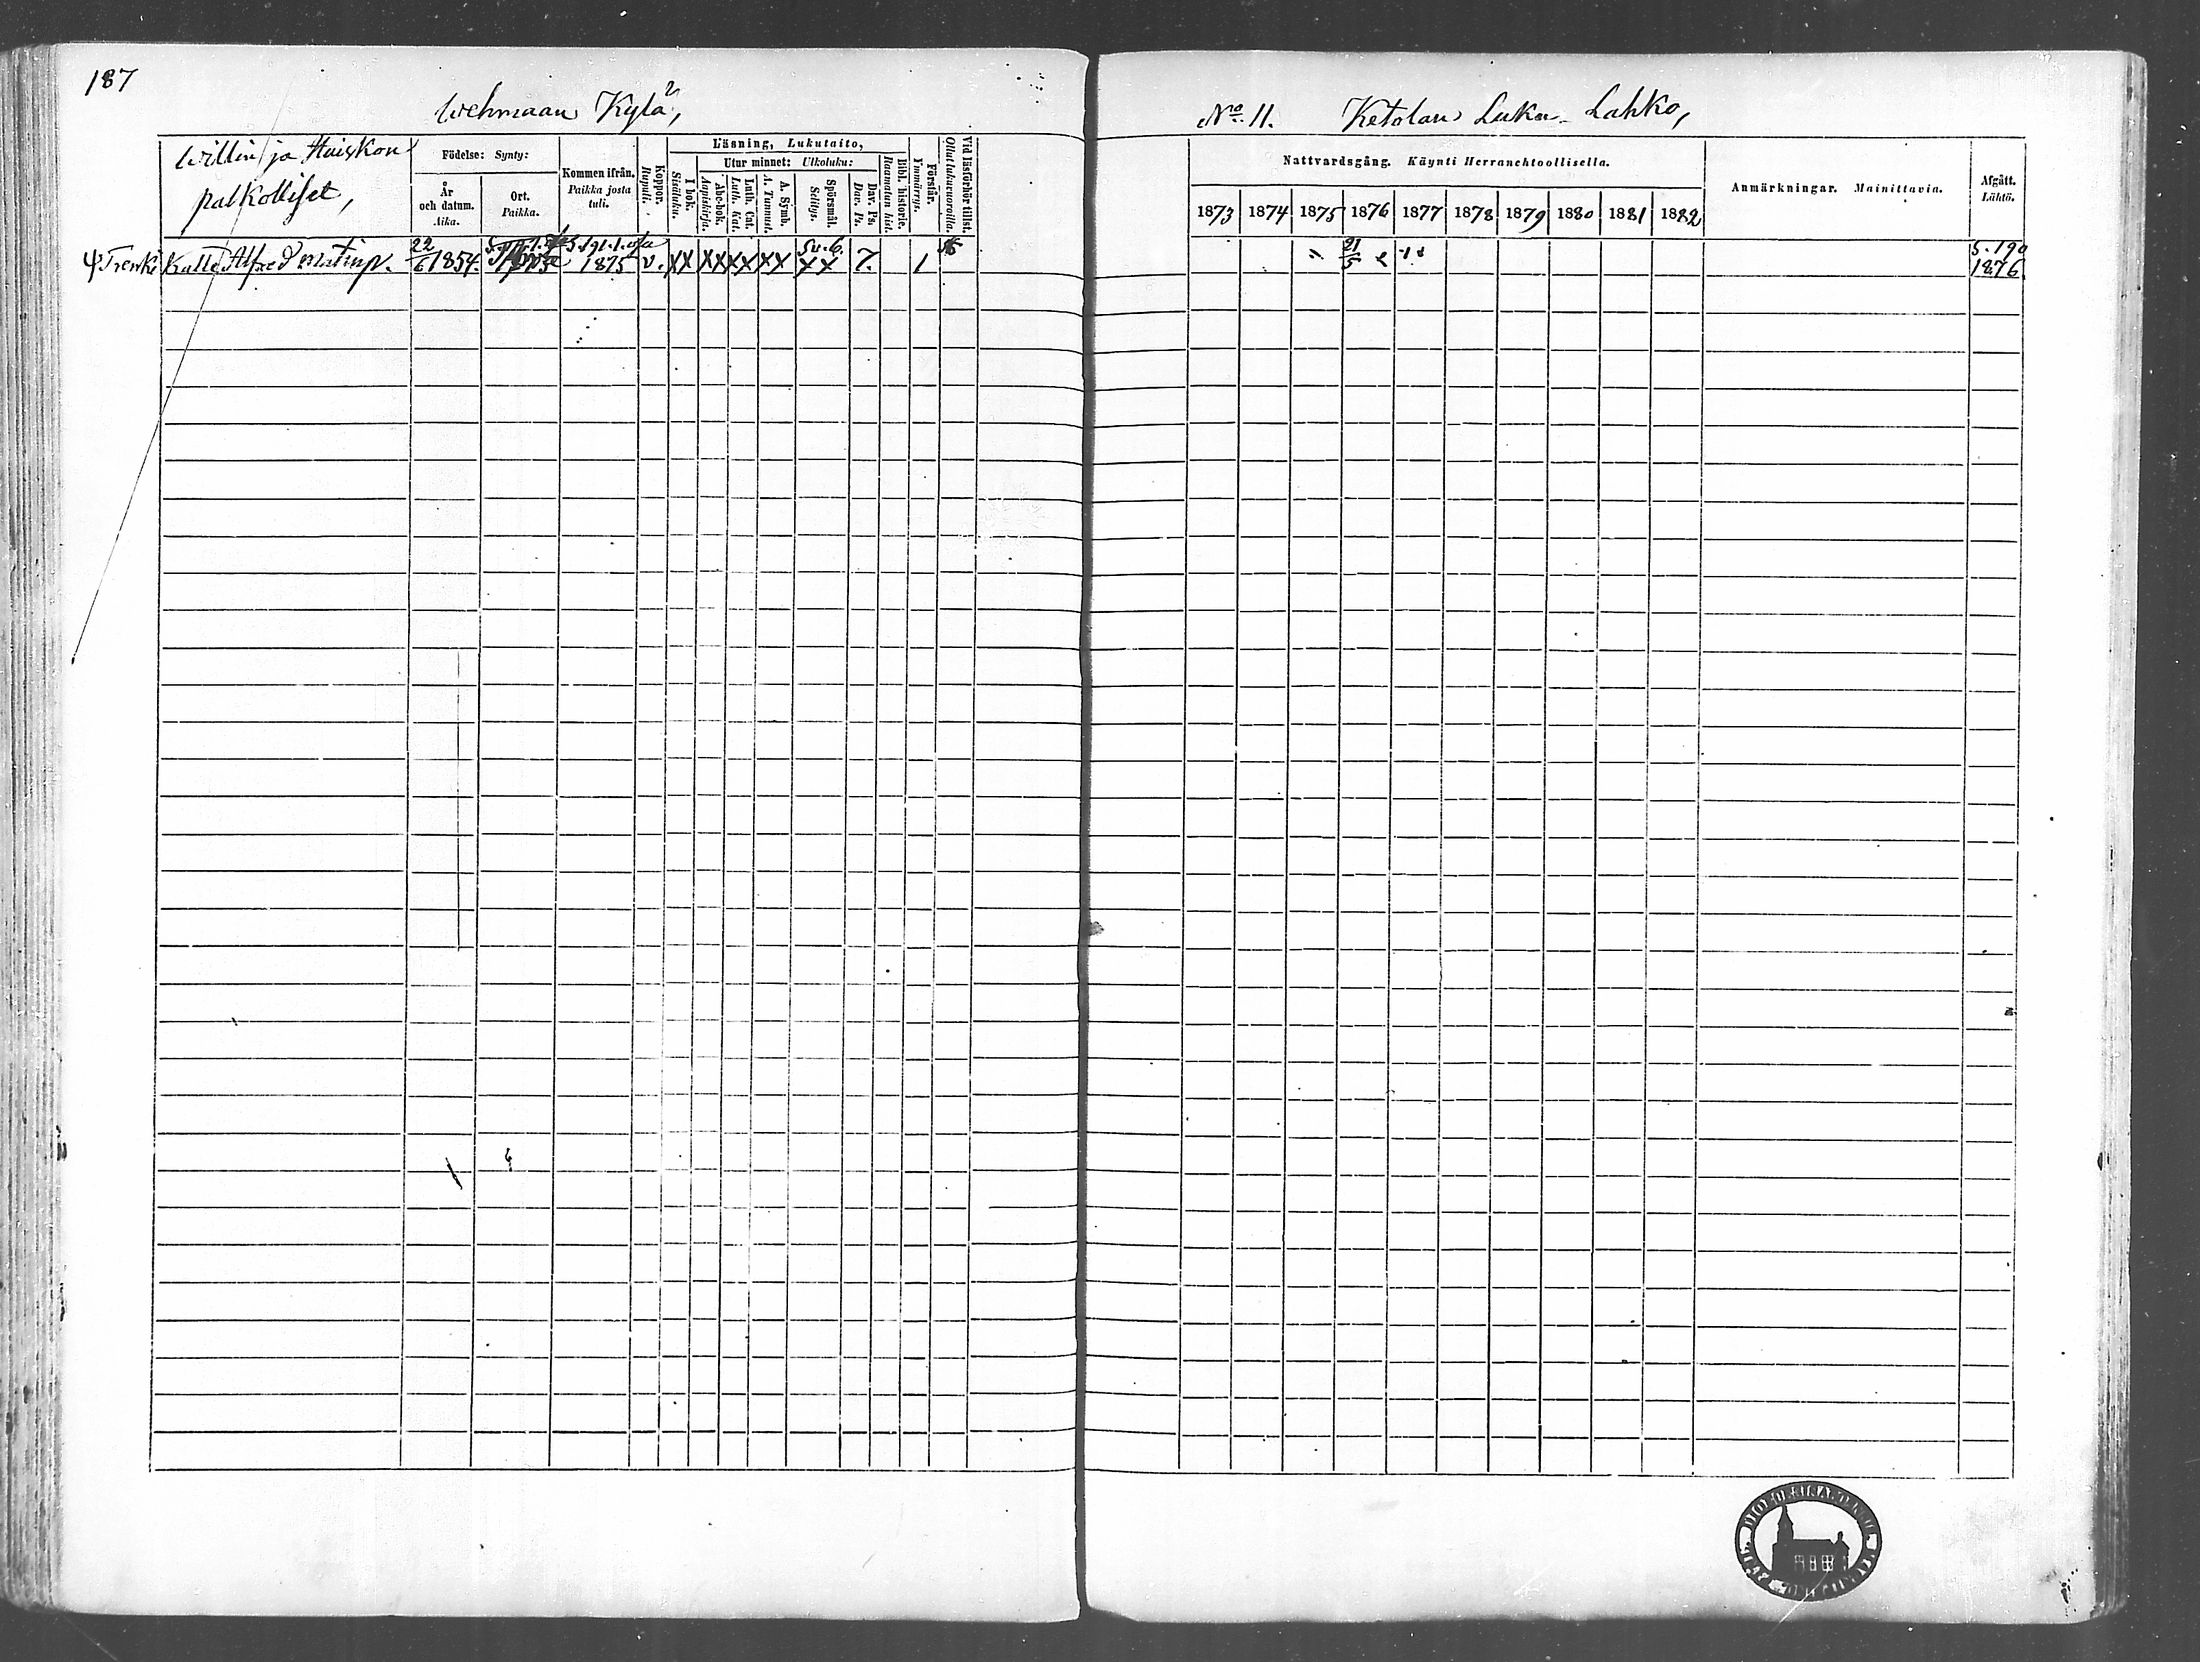 187
Wehmaan Kylä,
No. 11. Ketolan Luku-Lahko,
Willin ja Huiskon
palkolliset,
Födelse: Synty:
År och datum. Aika.
Ort. Paikka.
Kommen ifrån. Paikka josta tuli.
Koppor. Rupuli.
Läsning, Lukutaito,
I bok. Sisäluku.
Utur minnet: Ulkoluku:
Abc-bok. Aapiskirja.
Luth. Cat. Luth. Kat.
A. Symb. A. Tunnust.
Spörsmål. Selitys.
Dav. Ps. Dav. Ps.
Bibl. historie. Raamatun hist.
Förstår. Ymmärrys.
Vid läsförhör tillst. Ollut lukuvuoroilla.
Nattvardsgång. Käynti Herranehtoollisella.
1873 1874 1875 1876 1877 1878 1879 1880 1881 1882
Anmärkningar. Mainittavia.
Afgått. Lähtö.
Trenki Kalle Alfred Matinp. 22/6 1854. S. 191. 1875 v. XX XX XX XX Su. 6. XX 7. 1
21/5
S. 190
1876.